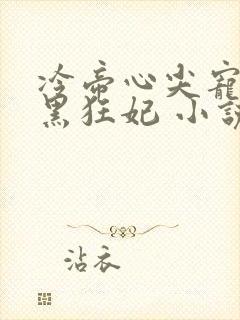 冷帝心尖宠
黑狂妃 小说
沾衣